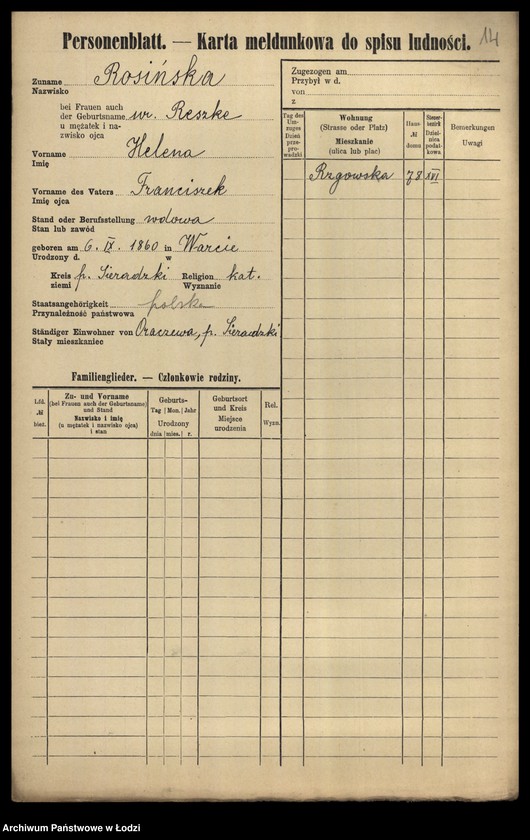 14
Personenblatt. — Karta meldunkowa do spisu ludności.
Zuname Rosińska
Nazwisko
bei Frauen auch
der Geburtsname wr. Reszke
u mężatek i na-
zwisko ojca
Vorname Helena
Imię
Vorname des Vaters Franciszek
Imię ojca
Stand oder Berufsstellung wdowa
Stan lub zawód
geboren am 6. IX. 1860 in Warcie
Urodzony d. w
Kreis p. Sieradzki Religion kat.
ziemi Wyznanie
Staatsangehörigkeit polska
Przynależność państwowa
Ständiger Einwohner von Oraczewa, p. Sieradzki
Stały mieszkaniec
Familienglieder. — Członkowie rodziny.
Lfd.
№
bież.
Zu- und Vorname
(bei Frauen auch der Geburtsname)
und Stand
Nazwisko i imię
(u mężatek i nazwisko ojca)
i stan
Geburts-
Tag Mon. Jahr
Urodzony
dnia mies. r.
Geburtsort
und Kreis
Miejsce
urodzenia
Rel.
Wyzn.
Zugezogen am
Przybył w d.
von
z
Tag des
Um-
zuges
Dzień
prze-
pro-
wadzki
Wohnung
(Strasse oder Platz)
Mieszkanie
(ulica lub plac)
Haus
№
domu
Steuer-
bezirk
Dziel-
nica
podat-
kowa
Bemerkungen
Uwagi
Rzgowska 78 XVI
Archiwum Państwowe w Łodzi